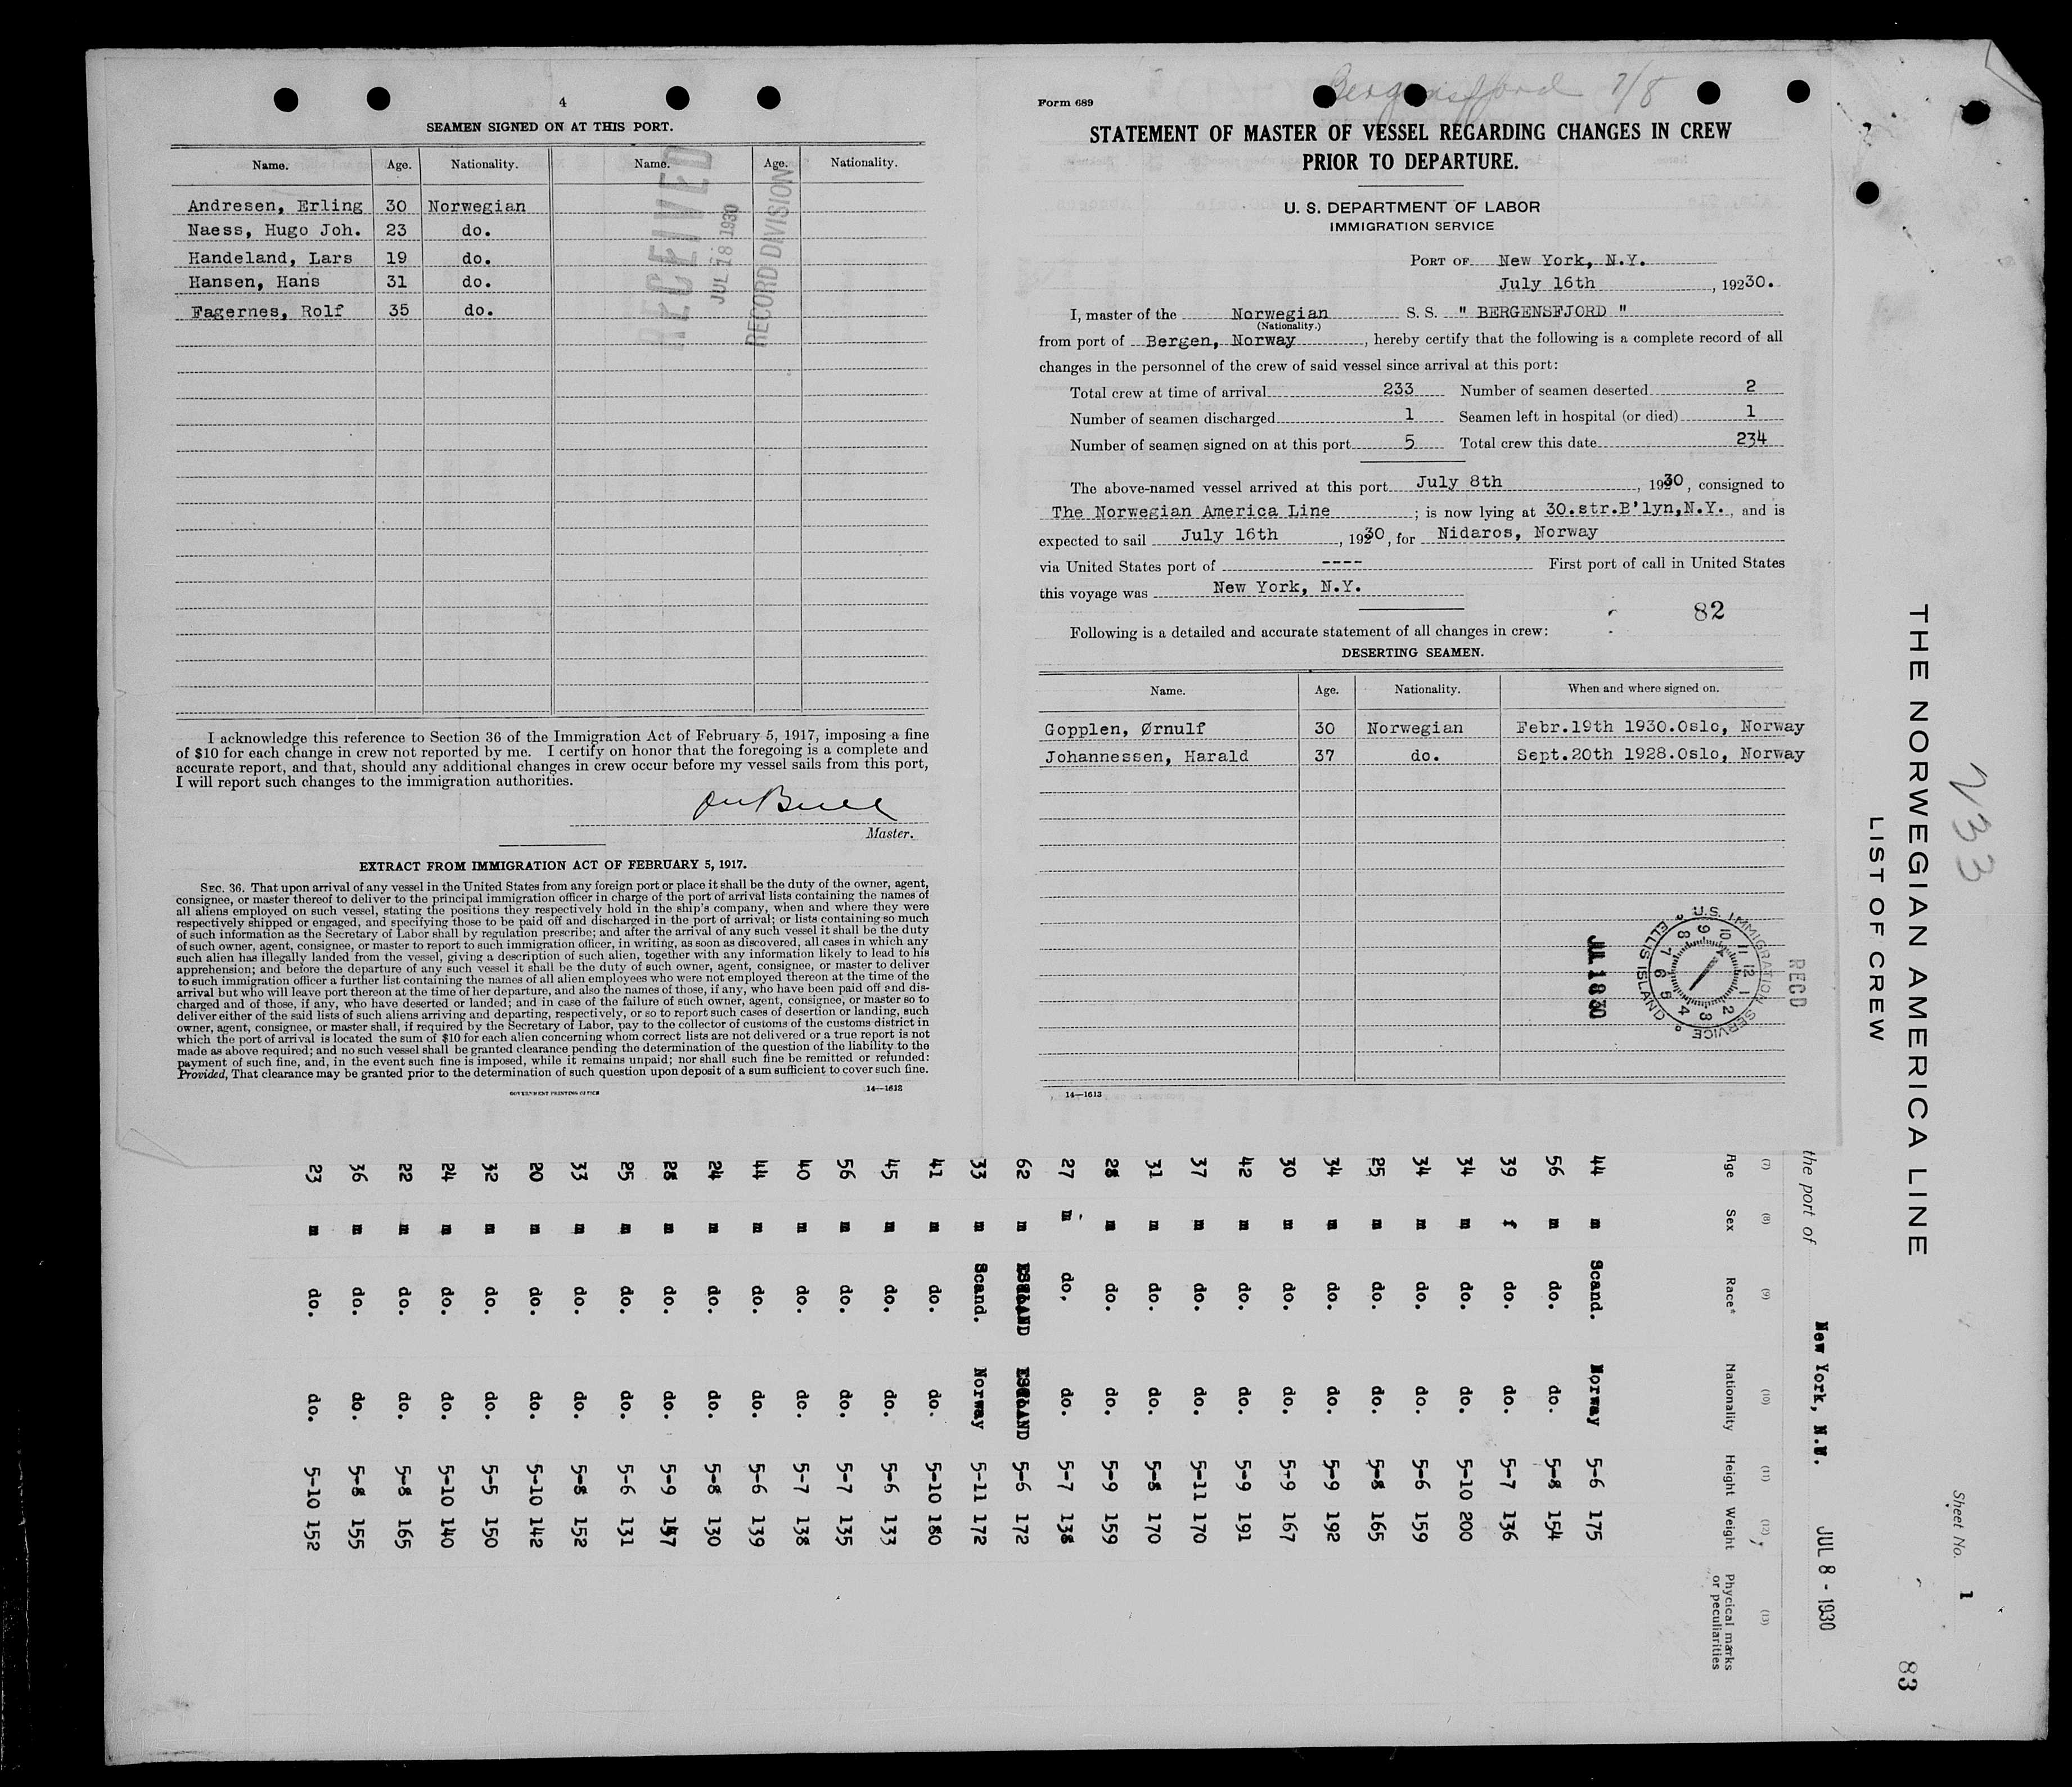 4
SEAMEN SIGNED ON AT THIS PORT.
Name. Age. Nationality. Name. Age. Nationality.
Andresen, Erling 30 Norwegian
Naess, Hugo Joh. 23 do.
Handeland, Lars 19 do.
Hansen, Hans 31 do.
Fagernes, Rolf 35 do.
RECEIVED
JUL 18 1930
RECORD DIVISION
I acknowledge this reference to Section 36 of the Immigration Act of February 5, 1917, imposing a fine
of $10 for each change in crew not reported by me. I certify on honor that the foregoing is a complete and
accurate report, and that, should any additional changes in crew occur before my vessel sails from this port,
I will report such changes to the immigration authorities.
Master.
EXTRACT FROM IMMIGRATION ACT OF FEBRUARY 5, 1917.
SEC. 36. That upon arrival of any vessel in the United States from any foreign port or place it shall be the duty of the owner, agent,
consignee, or master thereof to deliver to the principal immigration officer in charge of the port of arrival lists containing the names of
all aliens employed on such vessel, stating the positions they respectively hold in the ship's company, when and where they were
respectively shipped or engaged, and specifying those to be paid off and discharged in the port of arrival; or lists containing so much
of such information as the Secretary of Labor shall by regulation prescribe; and after the arrival of any such vessel it shall be the duty
of such owner, agent, consignee, or master to report to such immigration officer, in writing, as soon as discovered, all cases in which any
such alien has illegally landed from the vessel, giving a description of such alien, together with any information likely to lead to his
apprehension; and before the departure of any such vessel it shall be the duty of such owner, agent, consignee, or master to deliver
to such immigration officer a further list containing the names of all alien employees who were not employed thereon at the time of the
arrival but who will leave port thereon at the time of her departure, and also the names of those, if any, who have been paid off and dis-
charged and of those, if any, who have deserted or landed; and in case of the failure of such owner, agent, consignee, or master so to
deliver either of the said lists of such aliens arriving and departing, respectively, or so to report such cases of desertion or landing, such
owner, agent, consignee, or master shall, if required by the Secretary of Labor, pay to the collector of customs of the customs district in
which the port of arrival is located the sum of $10 for each alien concerning whom correct lists are not delivered or a true report is not
made as above required; and no such vessel shall be granted clearance pending the determination of the question of the liability to the
payment of such fine, and, in the event such fine is imposed, while it remains unpaid; nor shall such fine be remitted or refunded:
Provided, That clearance may be granted prior to the determination of such question upon deposit of a sum sufficient to cover such fine.
GOVERNMENT PRINTING OFFICE 14—1613
Bergensfjord 7/8
Form 689
STATEMENT OF MASTER OF VESSEL REGARDING CHANGES IN CREW
PRIOR TO DEPARTURE.
U. S. DEPARTMENT OF LABOR
IMMIGRATION SERVICE
PORT OF New York, N.Y.
July 16th, 19230.
I, master of the Norwegian S. S. " BERGENSFJORD "
(Nationality.)
from port of Bergen, Norway, hereby certify that the following is a complete record of all
changes in the personnel of the crew of said vessel since arrival at this port:
Total crew at time of arrival 233 Number of seamen deserted 2
Number of seamen discharged 1 Seamen left in hospital (or died) 1
Number of seamen signed on at this port 5 Total crew this date 234
The above-named vessel arrived at this port July 8th, 1930, consigned to
The Norwegian America Line; is now lying at 30.str.B'lyn,N.Y., and is
expected to sail July 16th, 1930, for Nidaros, Norway
via United States port of ---- First port of call in United States
this voyage was New York, N.Y.
82
Following is a detailed and accurate statement of all changes in crew:
DESERTING SEAMEN.
Name. Age. Nationality. When and where signed on.
Gopplen, Ørnulf 30 Norwegian Febr.19th 1930.Oslo, Norway
Johannessen, Harald 37 do. Sept.20th 1928.Oslo, Norway
JUL 18 30
U.S. IMMIGRATION SERVICE
ELLIS ISLAND
12 1 2 3 4 5 6 7 8 9 10 11
RECD
14—1613
THE NORWEGIAN AMERICA LINE
LIST OF CREW
233
Sheet No. 1
83
the port of New York, N.Y. JUL 8 - 1930
(7) (8) (9) (10) (11) (12) (13)
Age Sex Race* Nationality Height Weight Phycical marks
or peculiarities
44 m Scand. Norway 5-6 175
56 m do. do. 5-8 154
39 f do. do. 5-7 136
34 m do. do. 5-10 200
34 m do. do. 5-6 159
25 m do. do. 5-8 165
34 m do. do. 5-9 192
30 m do. do. 5-9 167
42 m do. do. 5-9 191
37 m do. do. 5-11 170
31 m do. do. 5-8 170
28 m do. do. 5-9 159
27 m do. do. 5-7 138
62 m 5-6 172
33 m Scand. Norway 5-11 172
41 m do. do. 5-10 180
45 m do. do. 5-6 133
56 m do. do. 5-7 135
40 m do. do. 5-7 138
44 m do. do. 5-6 139
24 m do. do. 5-8 130
28 m do. do. 5-9 157
25 m do. do. 5-6 131
33 m do. do. 5-8 152
20 m do. do. 5-10 142
32 m do. do. 5-5 150
24 m do. do. 5-10 140
22 m do. do. 5-8 165
36 m do. do. 5-8 155
23 m do. do. 5-10 152